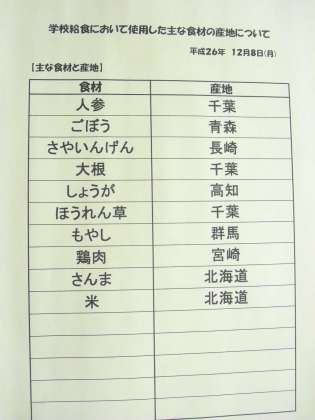 学校給食において使用した主な食材の産地について
平成26年 12月8日(月)
【主な食材と産地】
食材 産地
人参 千葉
ごぼう 青森
さやいんげん 長崎
大根 千葉
しょうが 高知
ほうれん草 千葉
もやし 群馬
鶏肉 宮崎
さんま 北海道
米 北海道